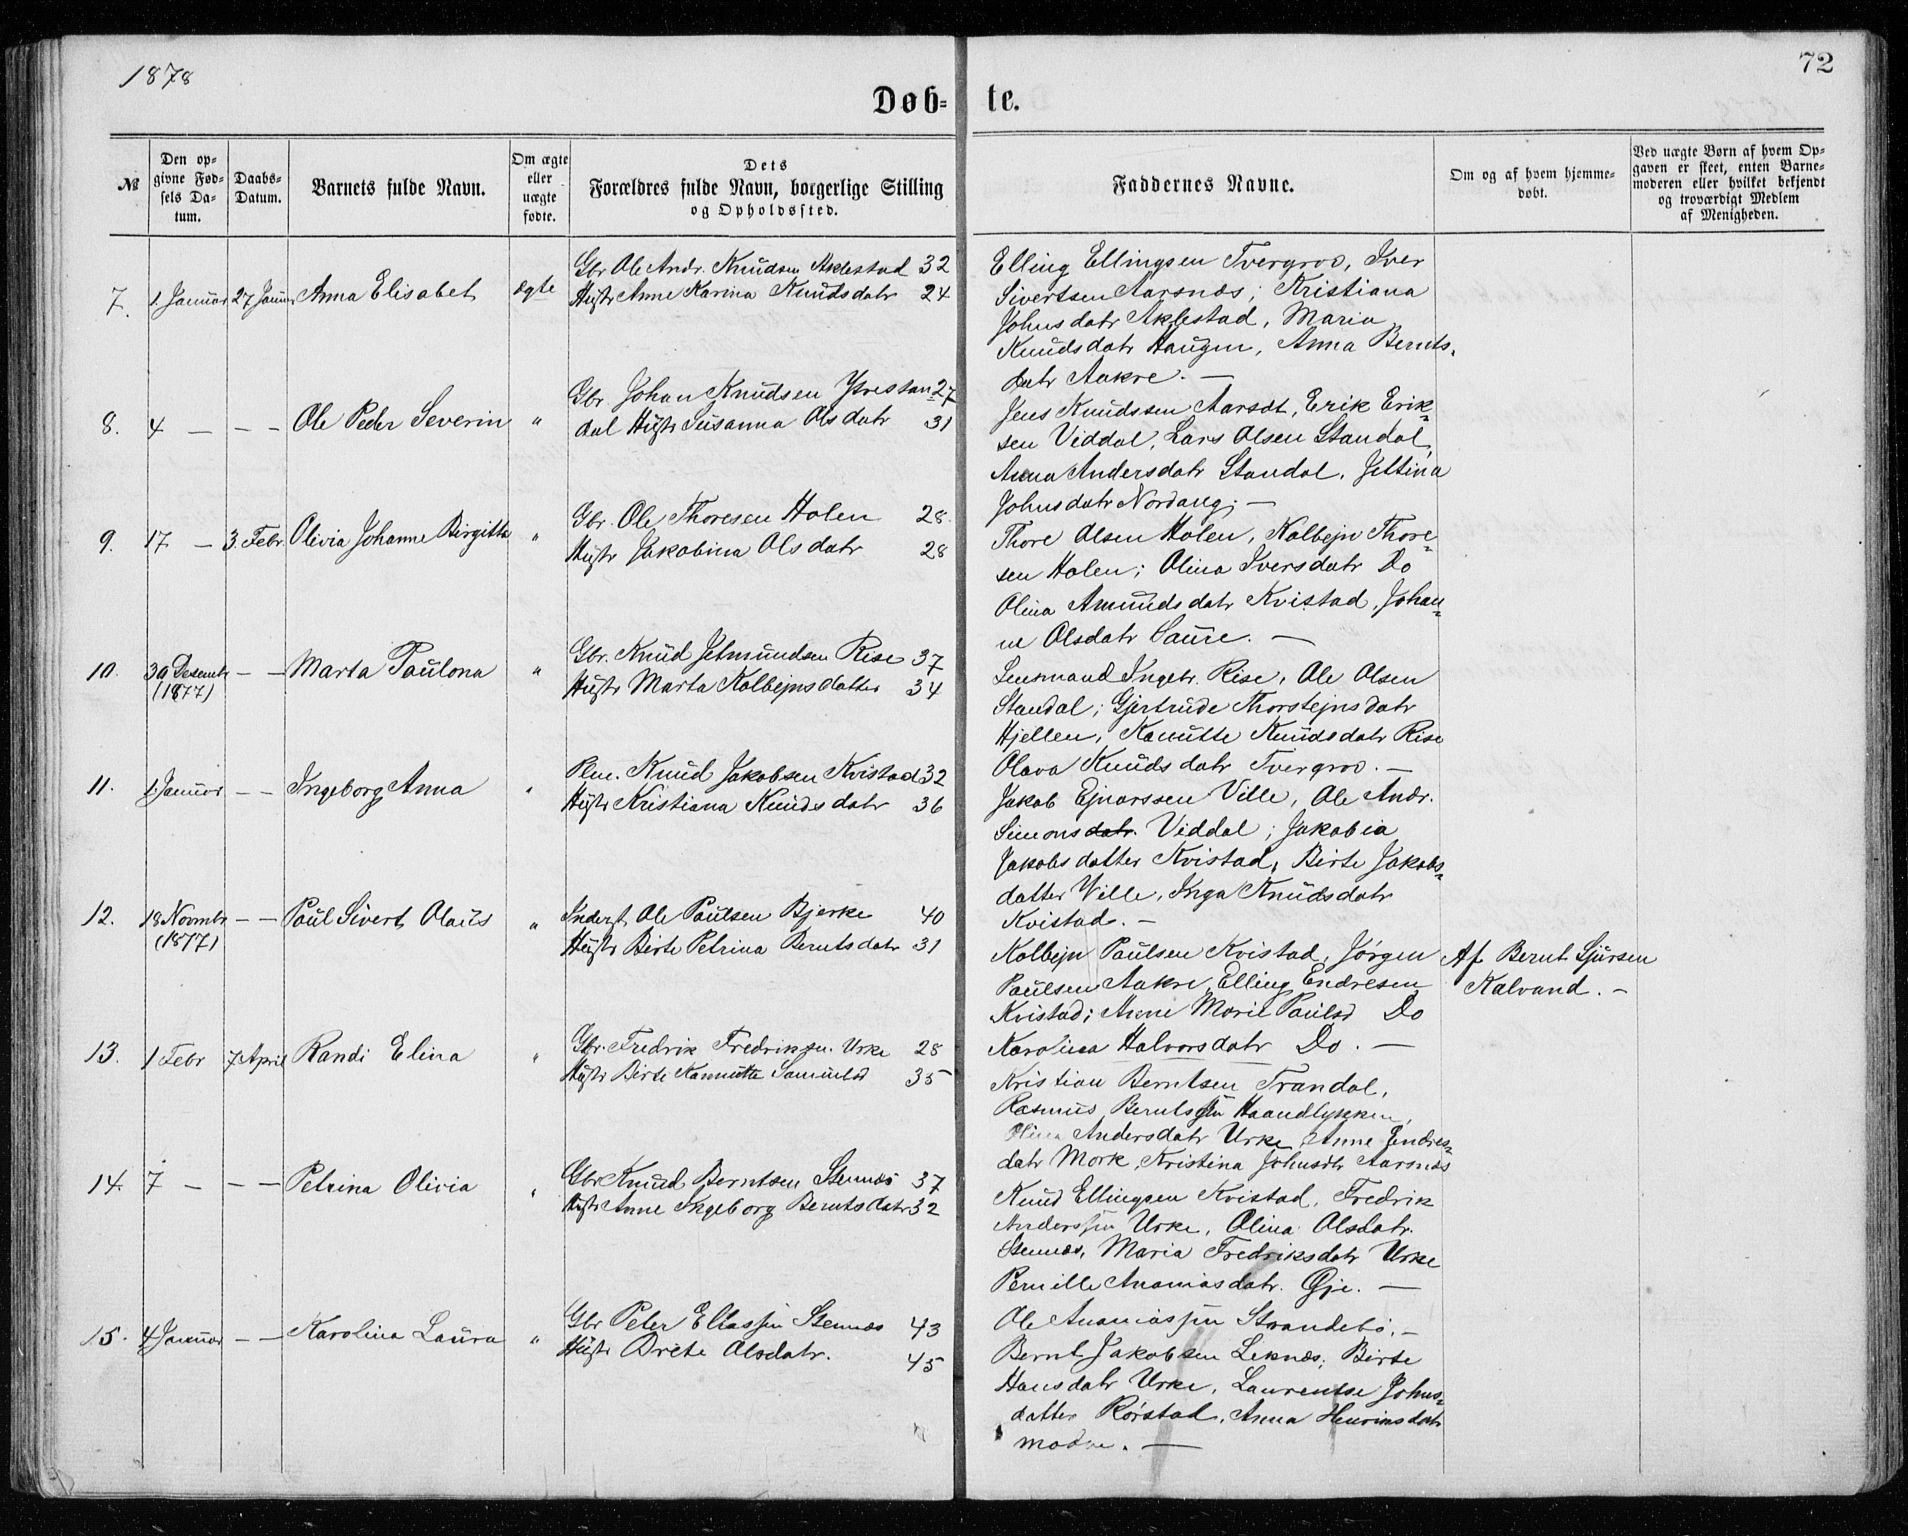 1878
72
Døb-
te.
№
Den op-
givne Fød-
sels Da-
tum.
Daabs-
Datum.
Barnets fulde Navn.
Om ægte
eller
uægte
fødte.
Dets
Forældres fulde Navn, borgerlige Stilling
og Opholdssted.
Faddernes Navne.
Om og af hvem hjemme-
døbt.
Ved uægte Børn af hvem Op-
gaven er skeet, enten Barne-
moderen eller hvilket bekjendt
og troværdigt Medlem
af Menigheden.
7. 1. Januar 27 Januar Anna Elisabet ægte
Gbr Ole Andr. Knudsen Aklestad 32
Hustr Anne Karina Knudsdatr 24
Elling Ellingsen Tvergrov, Iver
Sivertsen Aarsnæs; Kristiana
Johnsdatr Aklestad, Maria
Knudsdatr Haugen, Anna Bernts-
datr Aakre. —
8. 4 — — — Ole Peder Severin "
Gbr Johan Knudsen Ystestan- 27
dal Hustr Susanna Olsdatr 31
Jens Knudssen Aarsdt, Erik Erik-
sen Viddal, Lars Olsen Standal,
Anna Andersdatr Standal, Jettina
Johnsdatr Nordang; —
9. 17 — 3. Febr. Olivia Johanne Birgitte "
Gbr. Ole Thoresen Holen 28
Hustr Jakobina Olsdatr 28
Thore Olsen Holen, Kolbejn Thore-
sen Holen; Olina Iversdatr Do
Olina Amundsdatr Kvistad, Johan-
ne Olsdatr Saure. —
10. 30 Desembr — — Marta Paulona "
(1877)
Gbr. Knud Jetmundsen Rise 37
Hustr Marta Kolbejnsdatter 34
Lensmand Ingebr. Rise, Ole Olsen
Standal; Gjertrude Thorstejnsdatr
Hjellen, Kanutte Knudsdatr Rise
Olava Knudsdatr Tvergrov. —
11. 1. Januar — — Ingeborg Anna "
Plm. Knud Jakobsen Kvistad 32
Hustr Kristiana Knudsdatr 36
Jakob Ejnarssen Ville, Ole Andr.
Simonsdatr. Viddal; Jakobia
Jakobsdatter Kvistad, Birte Jakobs-
datter Ville, Inga Knudsdatr
Kvistad. —
12. 18 Novmbr — — Paul Sivert Olaus "
(1877)
Inderst Ole Paulsen Bjerke 40
Hustr Birte Petrina Berntsdatr 31
Kolbejn Paulsen Kvistad, Jørgen
Paulsen Aakre, Elling Endresen
Kvistad; Anne Marie Paulsd Do
Karolina Halvorsdatr Do. —
Af Bernt Sjursen
Kalvand. —
13. 1 Febr 7 April Randi Elina "
Gbr. Fredrik Fredriksen Urke 28
Hustr Birte Kannutta Samuelsd 35
Kristian Berntsen Trandal,
Rasmus Berntssen Haandlykken,
Olina Andersdatr Urke, Anne Endres-
datr Mork, Kristina Johnsdtr Aarsnæs
14. 7 — — — Petrina Olivia "
Gbr Knud Berntsen Stennæs 37
Hustr Anne Ingeborg Berntsdatr 32
Knud Ellingsen Kvistad, Fredrik
Anderssen Urke, Olina Olsdatr.
Stennæs, Maria Fredriksdatr Urke
Pernille Ananiasdatr. Øje. —
15. 4 Januar — — Karolina Laura "
Gbr Peter Eliassen Stennæs 43
Hustr Brete Olsdatr. 45
Ole Ananiassen Strandebø. —
Bernt Jakobsen Leknæs; Birte
Hansdatr Urke, Laurentse Johns-
datter Rørstad, Anna Henriksdatr